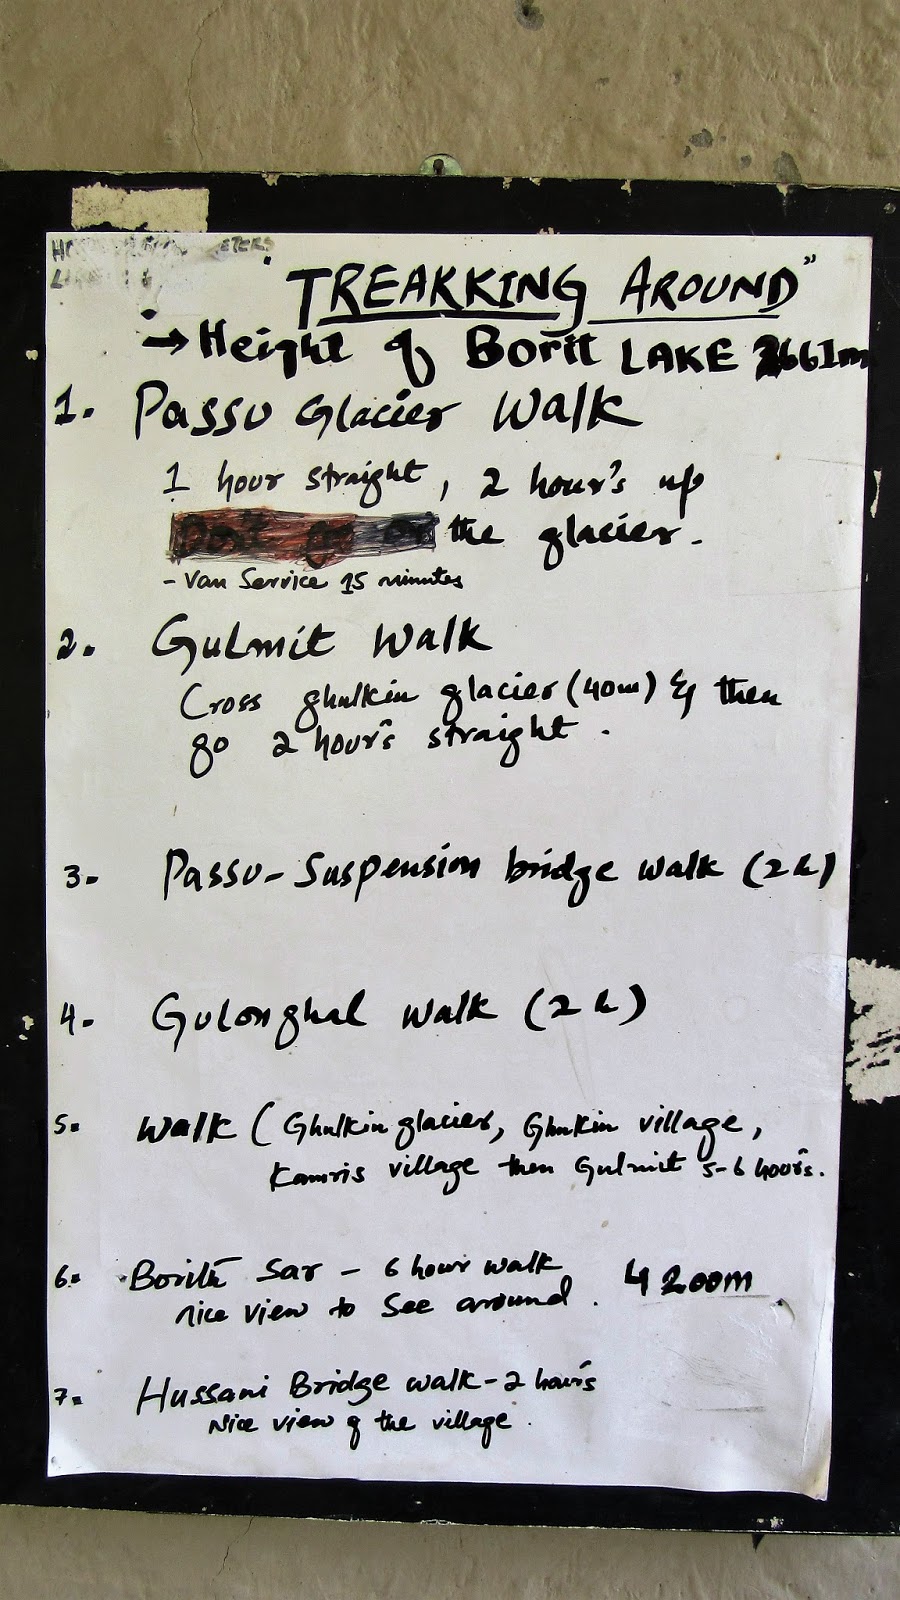 "TREAKKING AROUND"
→ Height of Borit LAKE 2661m
1. Passu Glacier Walk
1 hour straight, 2 hour's up
the glacier.
- Van Service 15 minutes
2. Gulmit Walk
Cross ghulkin glacier (40m) & then
go 2 hour's straight.
3- Passu-Suspension bridge walk (2h)
4- Gulonghal walk (2h)
5- Walk (Ghulkin glacier, Ghulkin village,
Kamris village then Gulmit 5-6 hours.
6- Borith Sar - 6 hour walk 4200m
nice view to See around.
7- Hussani Bridge walk - 2 hours
Nice view of the village.